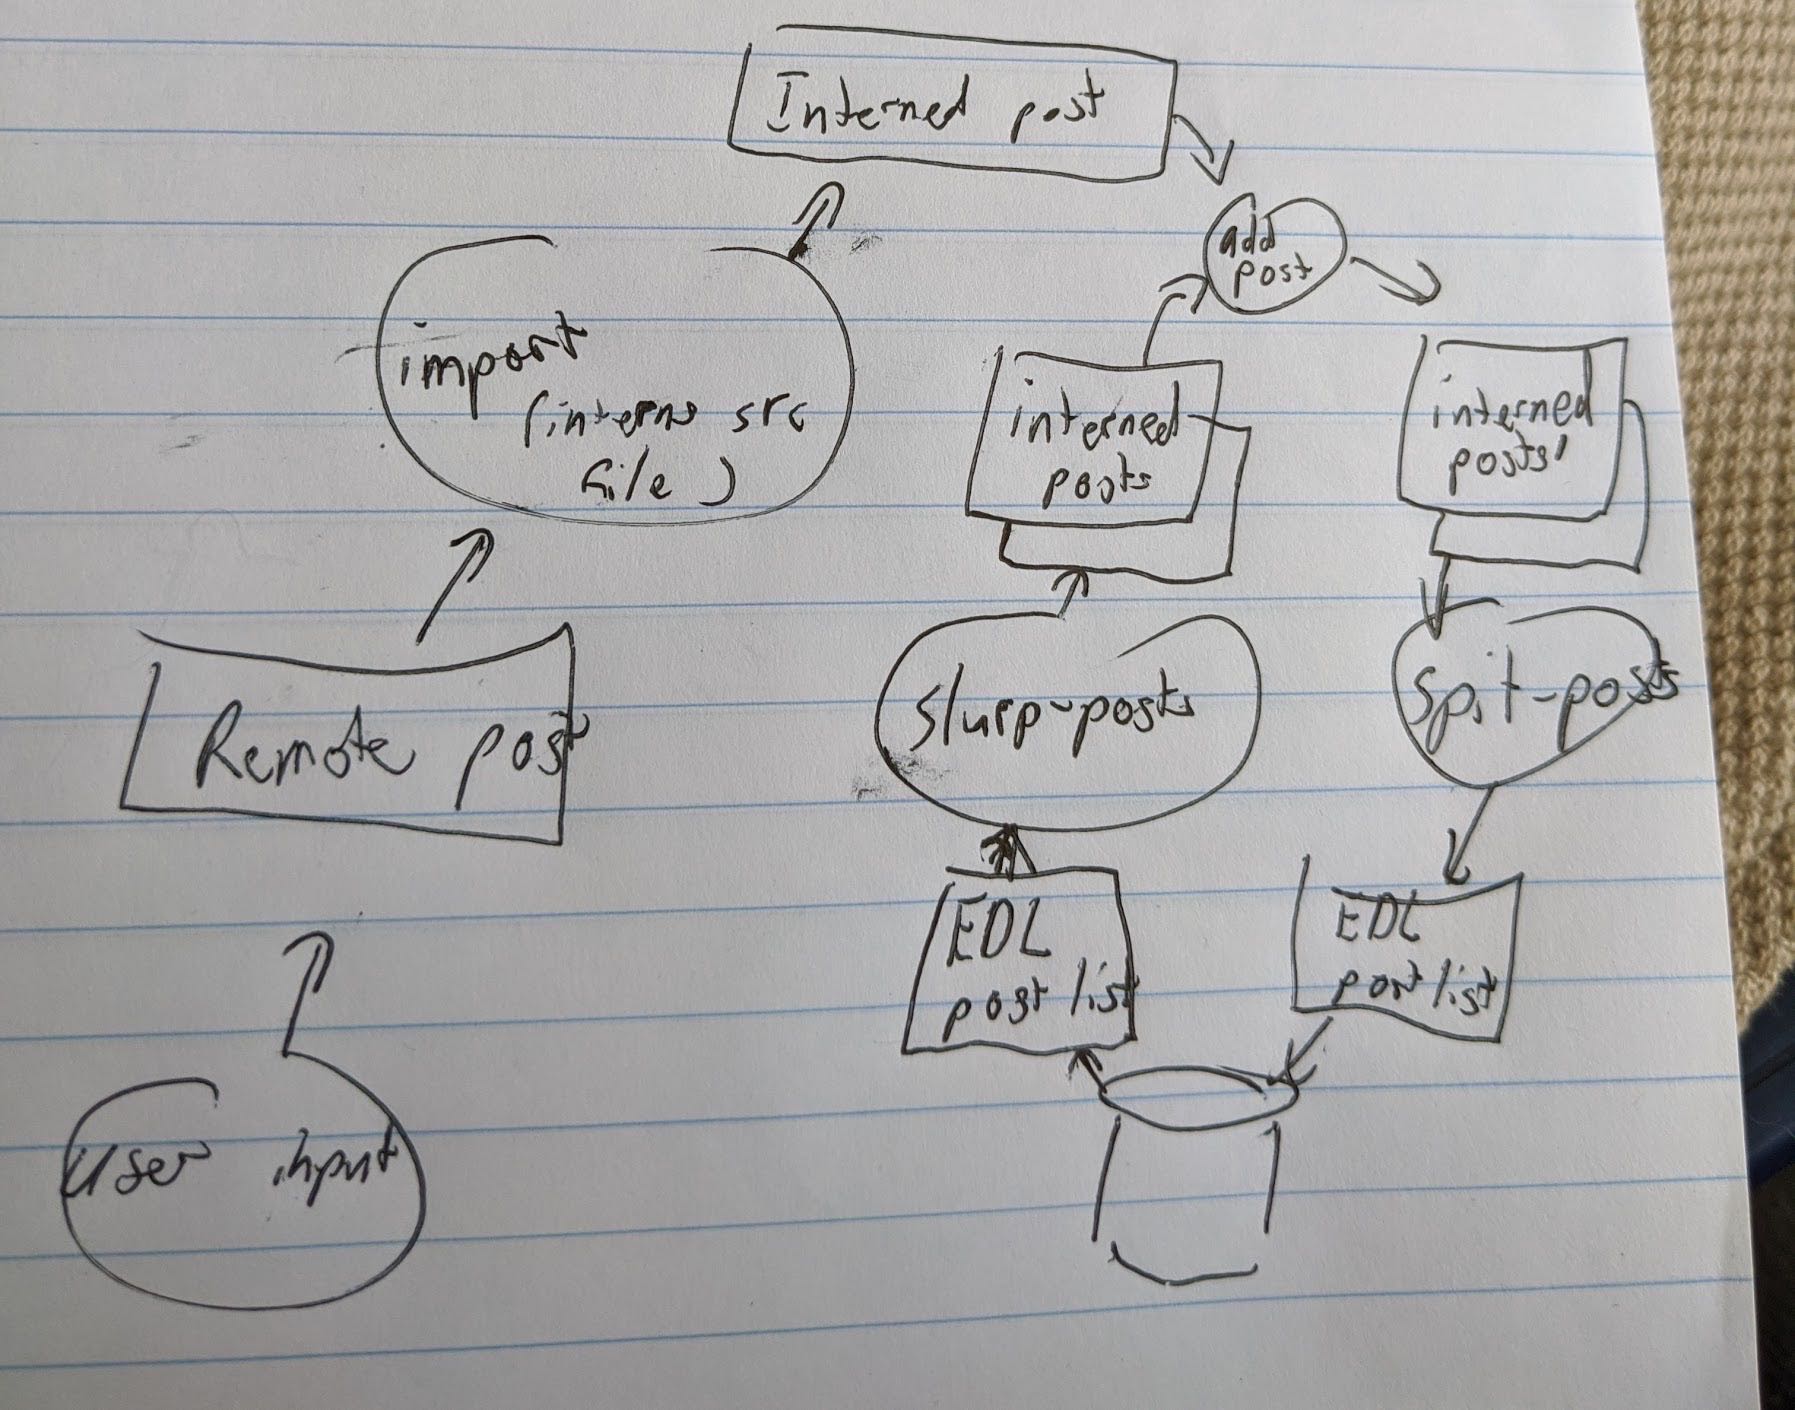 Interned post
add
post
import
(interns src
file)
interned
posts
interned
posts'
Remote post
slurp-posts
spit-posts
EDL
post list
EDL
post list
user input